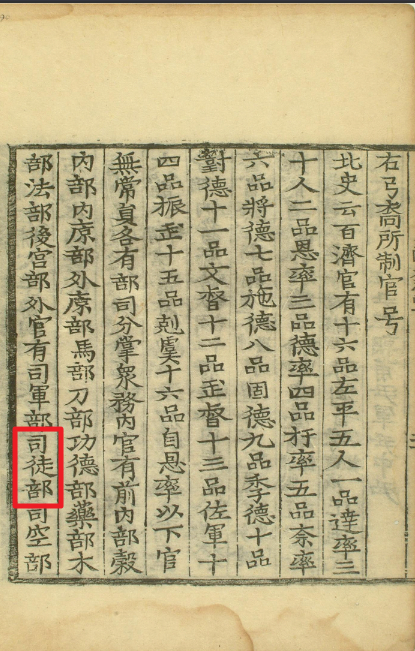 右弓裔所制官号
北史云百濟官有十六品左平五人一品達率三
十人二品恩率三品德率四品扞率五品奈率
六品將德七品施德八品固德九品季德十品
對德十一品文督十二品武督十三品佐軍十
四品振武十五品剋虞十六品自恩率以下官
無常員各有部司分掌衆務內官有前內部穀
內部內部外部馬部刀部功德部藥部木
部法部後宮部外官有司軍部司徒部司空部